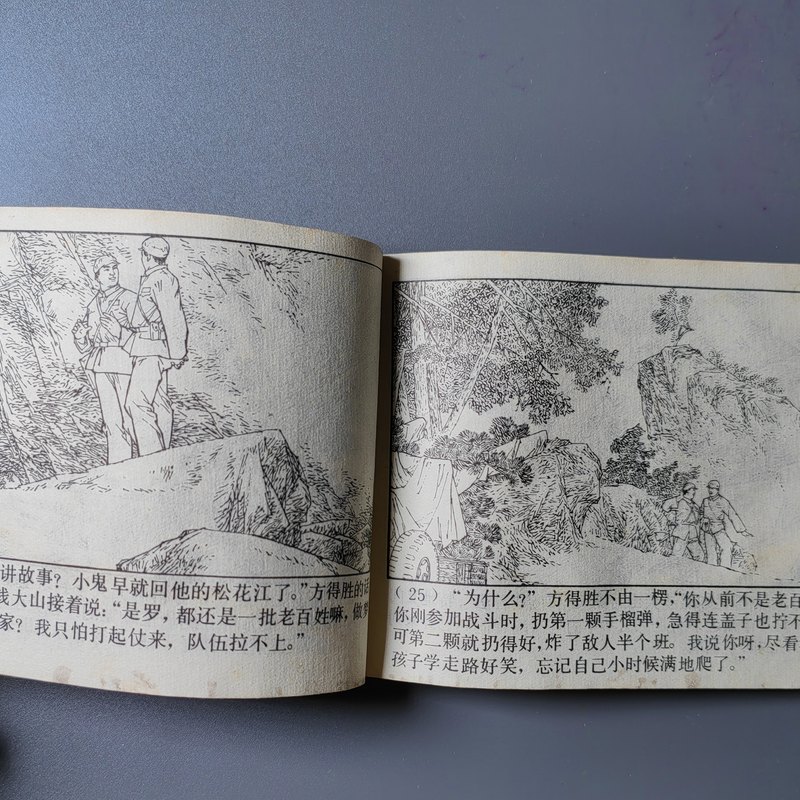 讲故事？小鬼早就回他的松花江了。”方得胜的话
大山接着说：“是罗，都还是一批老百姓嘛，做
家？我只怕打起仗来，队伍拉不上。”
（25）“为什么？”方得胜不由一楞，“你从前不是老百
你刚参加战斗时，扔第一颗手榴弹，急得连盖子也拧不
可第二颗就扔得好，炸了敌人半个班。我说你呀，尽看
孩子学走路好笑，忘记自己小时候满地爬了。”